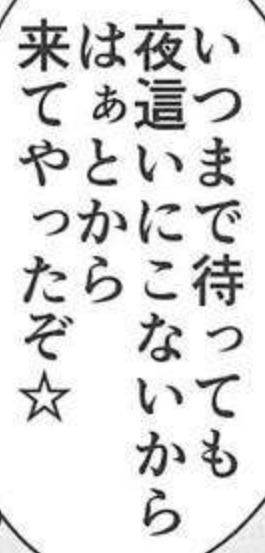 いつまで待っても
夜這いにこないから
はぁとから
来てやったぞ☆